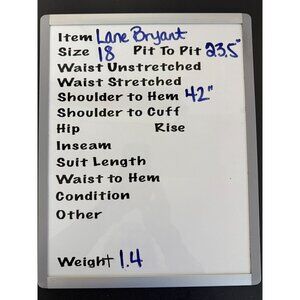 Item Lane Bryant
Size 18 Pit To Pit 23.5"
Waist Unstretched
Waist Stretched
Shoulder to Hem 42"
Shoulder to Cuff
Hip Rise
Inseam
Suit Length
Waist to Hem
Condition
Other
Weight 1.4